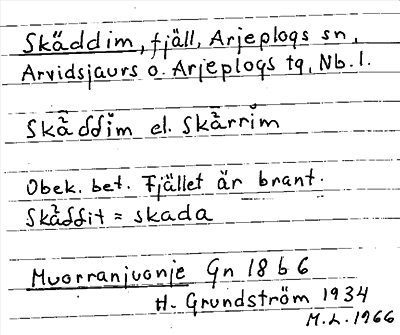 Skäddim, fjäll, Arjeplogs sn,
Arvidsjaurs o. Arjeplogs tg, Nb. l.
Skä̀ddim el. Skä̀rrim
Obek. bet. Fjället är brant.
Skä̀ddit = skada
Muorranjuonje Gn 18 b 6
H. Grundström 1934
M.L. 1966